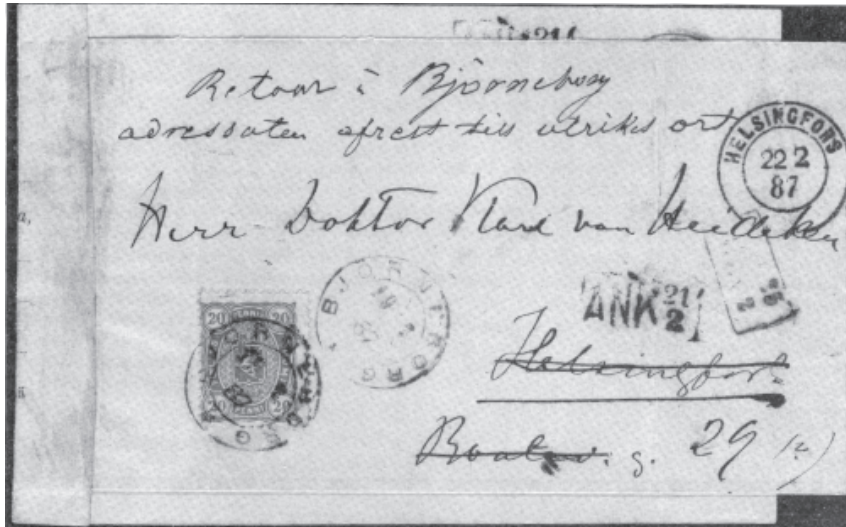 Retour à Björneborg
adressaten afrest till utrikes ort
HELSINGFORS
22 2
87
Herr Doktor von Heideken
BJÖRNEBORG
20 20
20 20
ANK 21/2
Helsingfors
g. 29